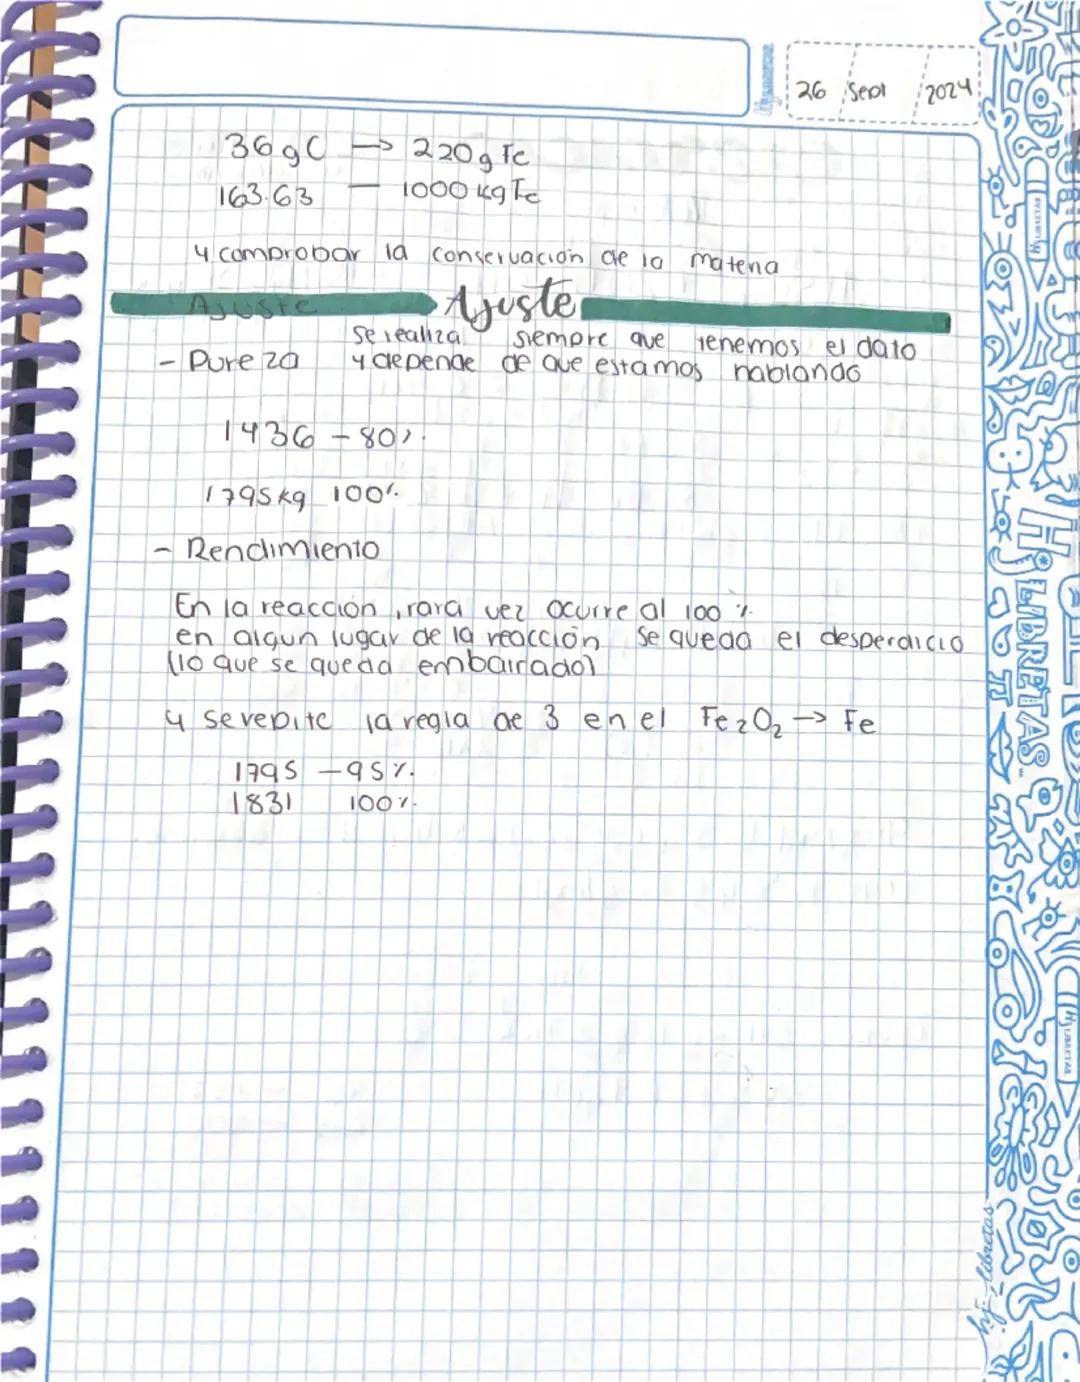 26 Sept 2024
36 g C → 220 g Fe
163.63 — 1000 kg Fe
y comprobar la conservación de la materia
Ajuste
Ajuste
Se realiza siempre que tenemos el dato
- Pureza y depende de que estamos hablando
1436 - 80%.
1795 kg 100%.
- Rendimiento
En la reacción, rara vez ocurre al 100 %.
en algun lugar de la reacción se queda el desperdicio
(lo que se queda embarrado)
y se repite la regla de 3 en el Fe₂O₂ → Fe
1795 - 95%.
1831 100%.
Hj LIBRETAS
hj_libretas